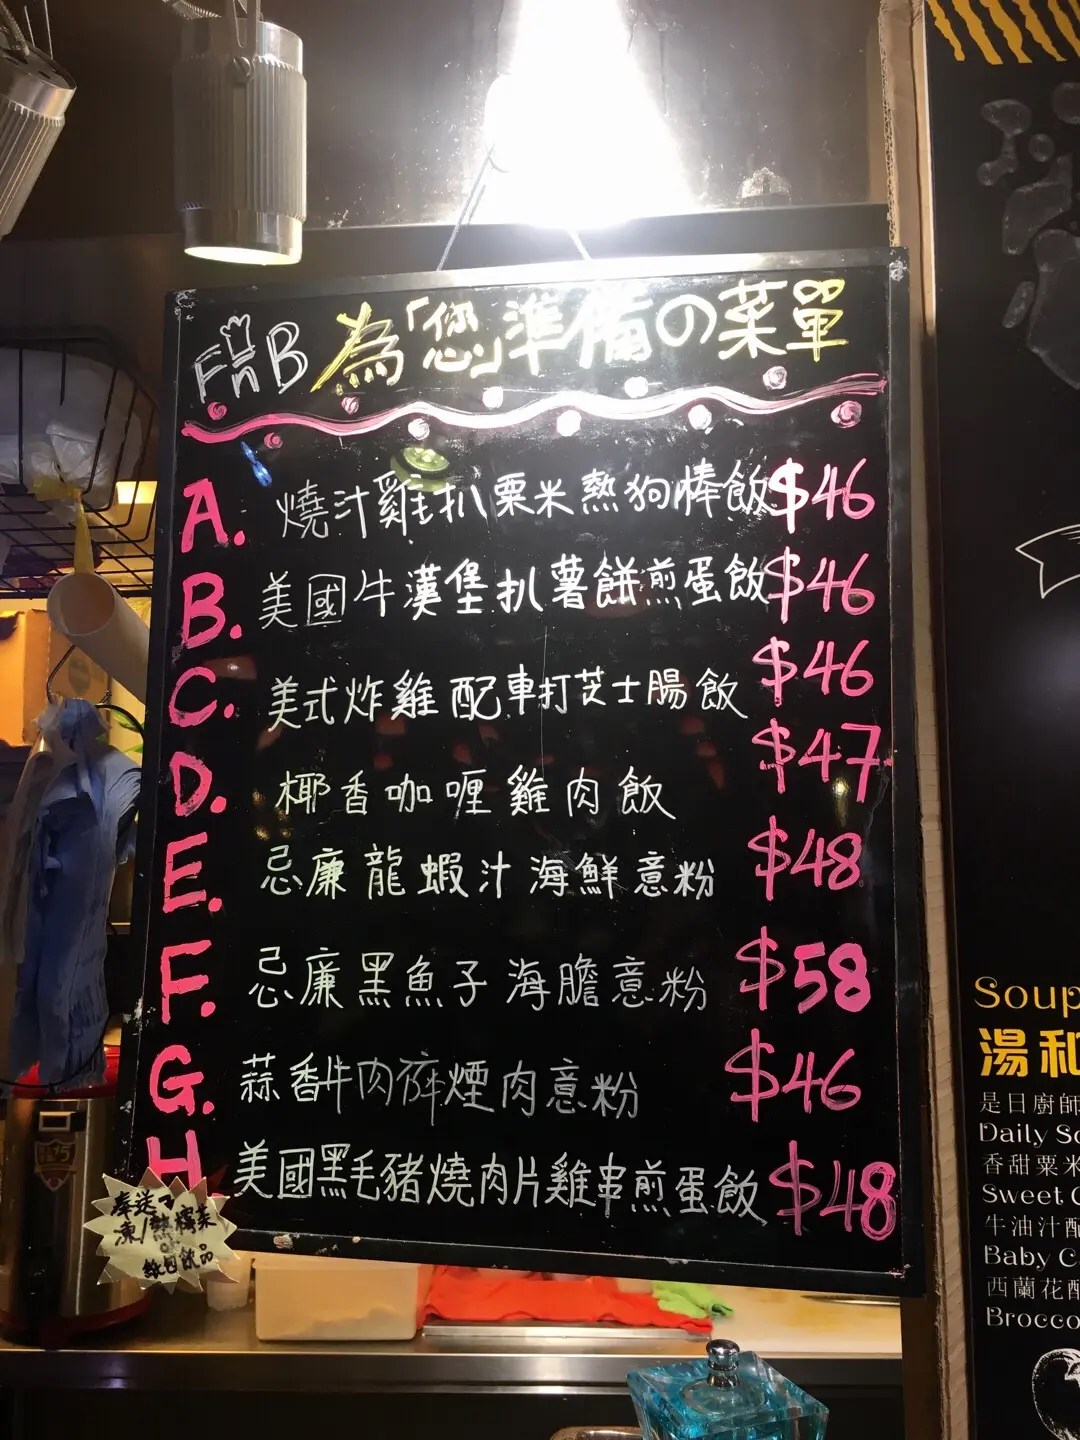 FnB 為「您」準備の菜單
A. 燒汁雞扒粟米熱狗棒飯 $46
B. 美國牛漢堡扒薯餅煎蛋飯 $46
C. 美式炸雞配車打芝士腸飯 $46
D. 椰香咖喱雞肉飯 $47
E. 忌廉龍蝦汁海鮮意粉 $48
F. 忌廉黑魚子海膽意粉 $58
G. 蒜香牛肉碎煙肉意粉 $46
H. 美國黑毛豬燒肉片雞串煎蛋飯 $48
奉送
凍/熱檸茶
or
紙包飲品
Soup
湯和
是日廚師
Daily So
香甜粟米
Sweet C
牛油汁配
Baby C
西蘭花配
Brocco